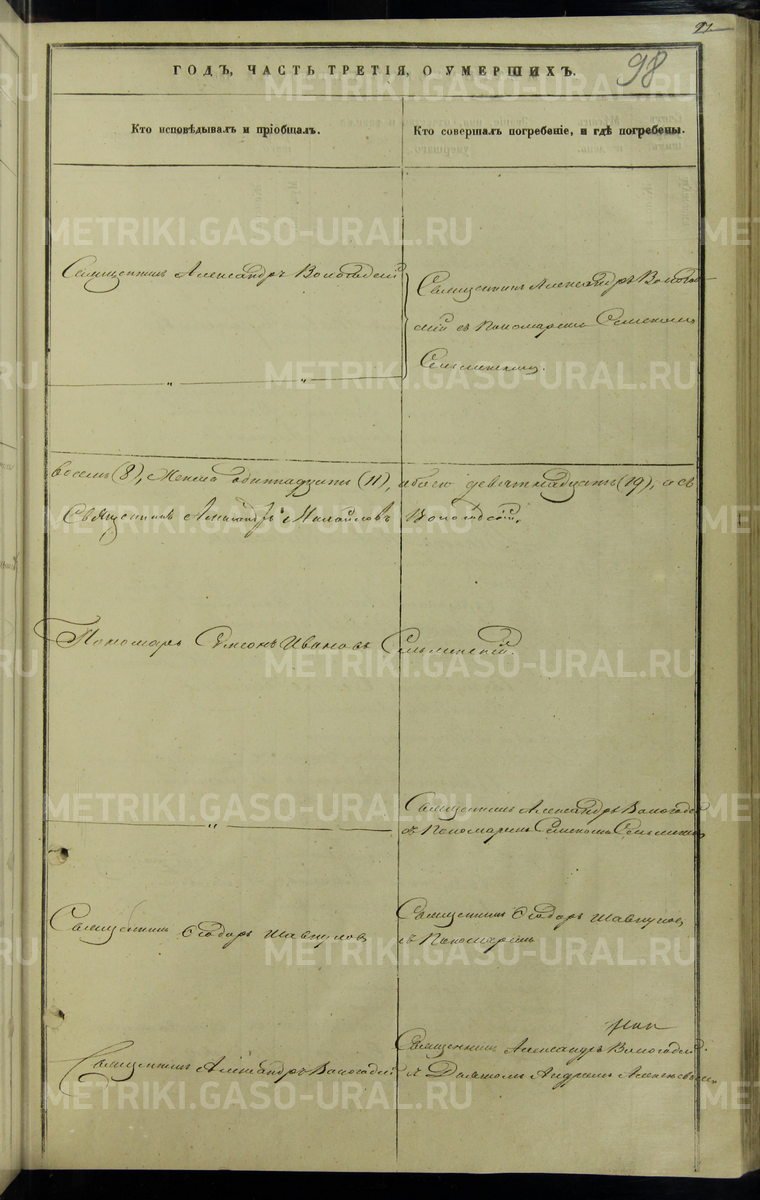 98
ГОДЪ, ЧАСТЬ ТРЕТІЯ, О УМЕРШИХЪ.
Кто исповѣдывалъ и пріобщалъ.
Кто совершалъ погребеніе, и гдѣ погребены.
Священникъ Александръ Вологодскій
Священникъ Александръ Волого-
дскій съ Пономаремъ Семеномъ
восемь (8), Женска одиннадцать (11), обоего девятнадцать (19), а съ
Священникъ Александръ Михайловъ Вологодскій.
Пономарь Симеонъ Ивановъ
Священникъ Александръ Вологодскій
съ Пономаремъ Семеномъ
Священникъ Ѳеодоръ Шавкуновъ
Священникъ Ѳеодоръ Шавкуновъ
съ Пономаремъ
Священникъ Александръ Вологодскій
Священникъ Александръ Вологодскій
съ Андреемъ
METRIKI.GASO-URAL.RU